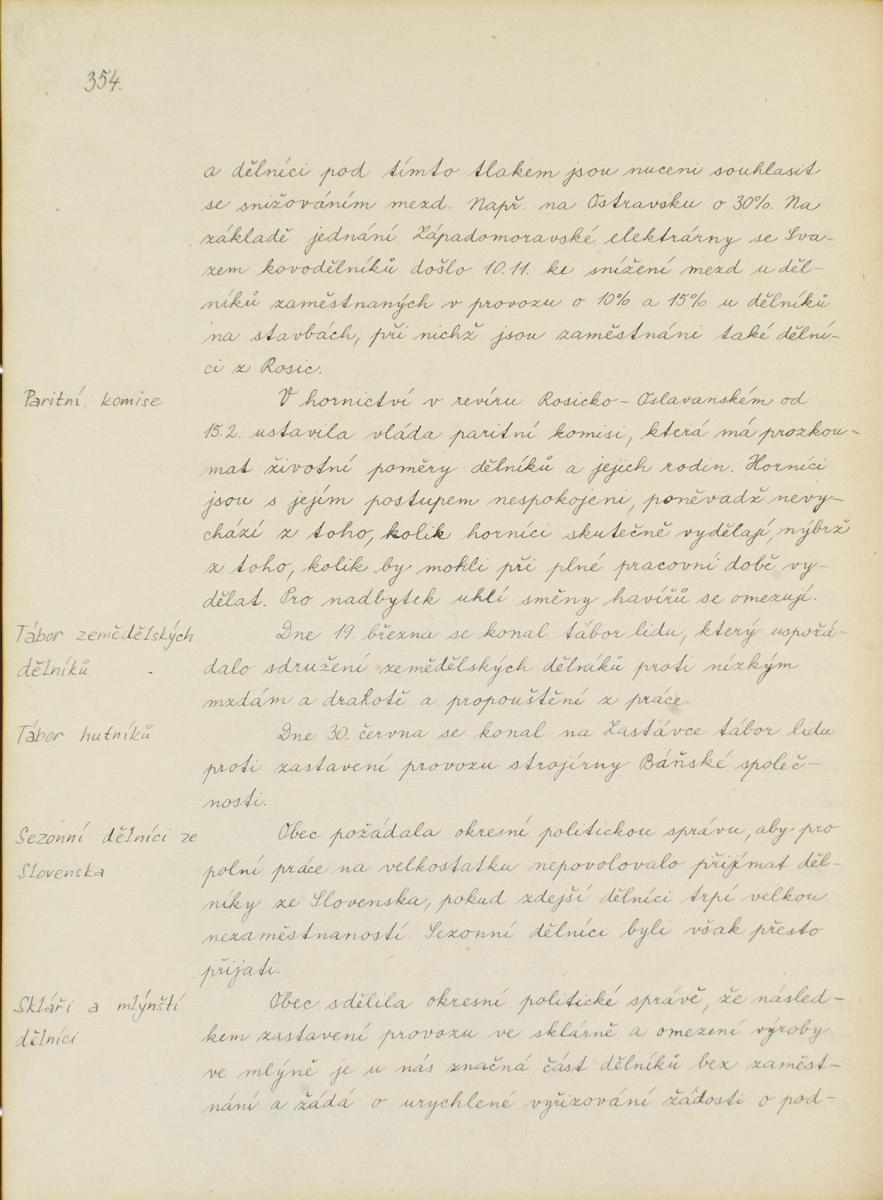 354.
a dělníci pod tímto tlakem jsou nuceni souhlasit
se snižováním mezd. Např. na Ostravsku o 30%. Na
základě jednání Západomoravské elektrárny se Sva-
zem kovodělníků došlo 10.11. ke snížení mezd u děl-
níků zaměstnaných v provozu o 10% a 15% u dělníků
na stavbách, při nichž jsou zaměstnáni také dělní-
ci z Rosic.
Paritní komise
V hornictví v revíru Rosicko-Oslavanském od
15.2. ustavila vláda paritní komisi, která má prozkou-
mat životní poměry dělníků a jejich rodin. Horníci
jsou s jejím postupem nespokojeni, poněvadž nevy-
chází z toho, kolik horníci skutečně vydělají, nýbrž
z toho, kolik by mohli při plné pracovní době vy-
dělat. Pro nadbytek uhlí směny havířů se omezují.
Tábor zemědělských
dělníků
Dne 19. března se konal tábor lidu, který uspořá-
dalo sdružení zemědělských dělníků proti nízkým
mzdám a drahotě a propouštění z práce.
Tábor hutníků
Dne 30. června se konal na Zastávce tábor lidu
proti zastavení provozu strojírny Báňské společ-
nosti.
Sezonní dělníci ze
Slovenska
Obec požádala okresní politickou správu, aby pro
polní práce na velkostatku nepovolovalo přijímat děl-
níky ze Slovenska, pokud zdejší dělníci trpí velkou
nezaměstnaností. Sezonní dělníci byli však přesto
přijati.
Skláři a mlýnští
dělníci
Obec sdělila okresní politické správě, že násled-
kem zastavení provozu ve sklárně a omezení výroby
ve mlýně je u nás značná část dělníků bez zaměst-
nání a žádá o urychlené vyřizování žádosti o pod-